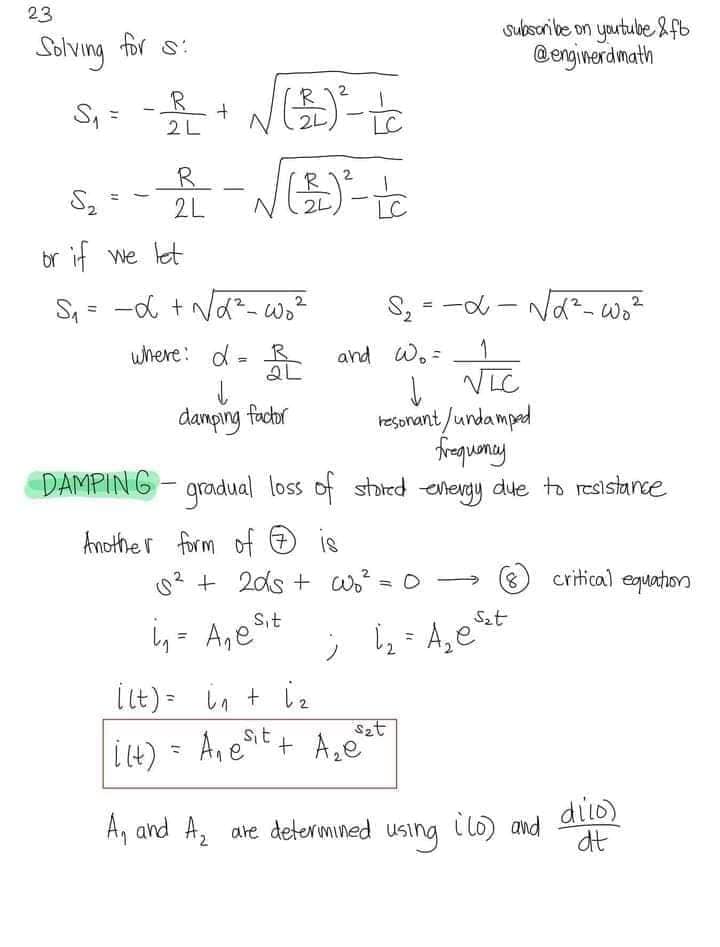 23
subscribe on youtube & fb
@enginerdmath
Solving for s:
S₁ = -R/2L + √((R/2L)² - 1/LC)
S₂ = -R/2L - √((R/2L)² - 1/LC)
or if we let
S₁ = -α + √(α² - ω₀²)    S₂ = -α - √(α² - ω₀²)
where: α = R/2L and ω₀ = 1/√LC
↓ ↓
damping factor    resonant/undamped
frequency
DAMPING - gradual loss of stored energy due to resistance
Another form of ⑦ is
s² + 2αs + ω₀² = 0 → ⑧ critical equation
i₁ = A₁e^(s₁t) ; i₂ = A₂e^(s₂t)
i(t) = i₁ + i₂
i(t) = A₁e^(s₁t) + A₂e^(s₂t)
A₁ and A₂ are determined using i(0) and di(0)/dt